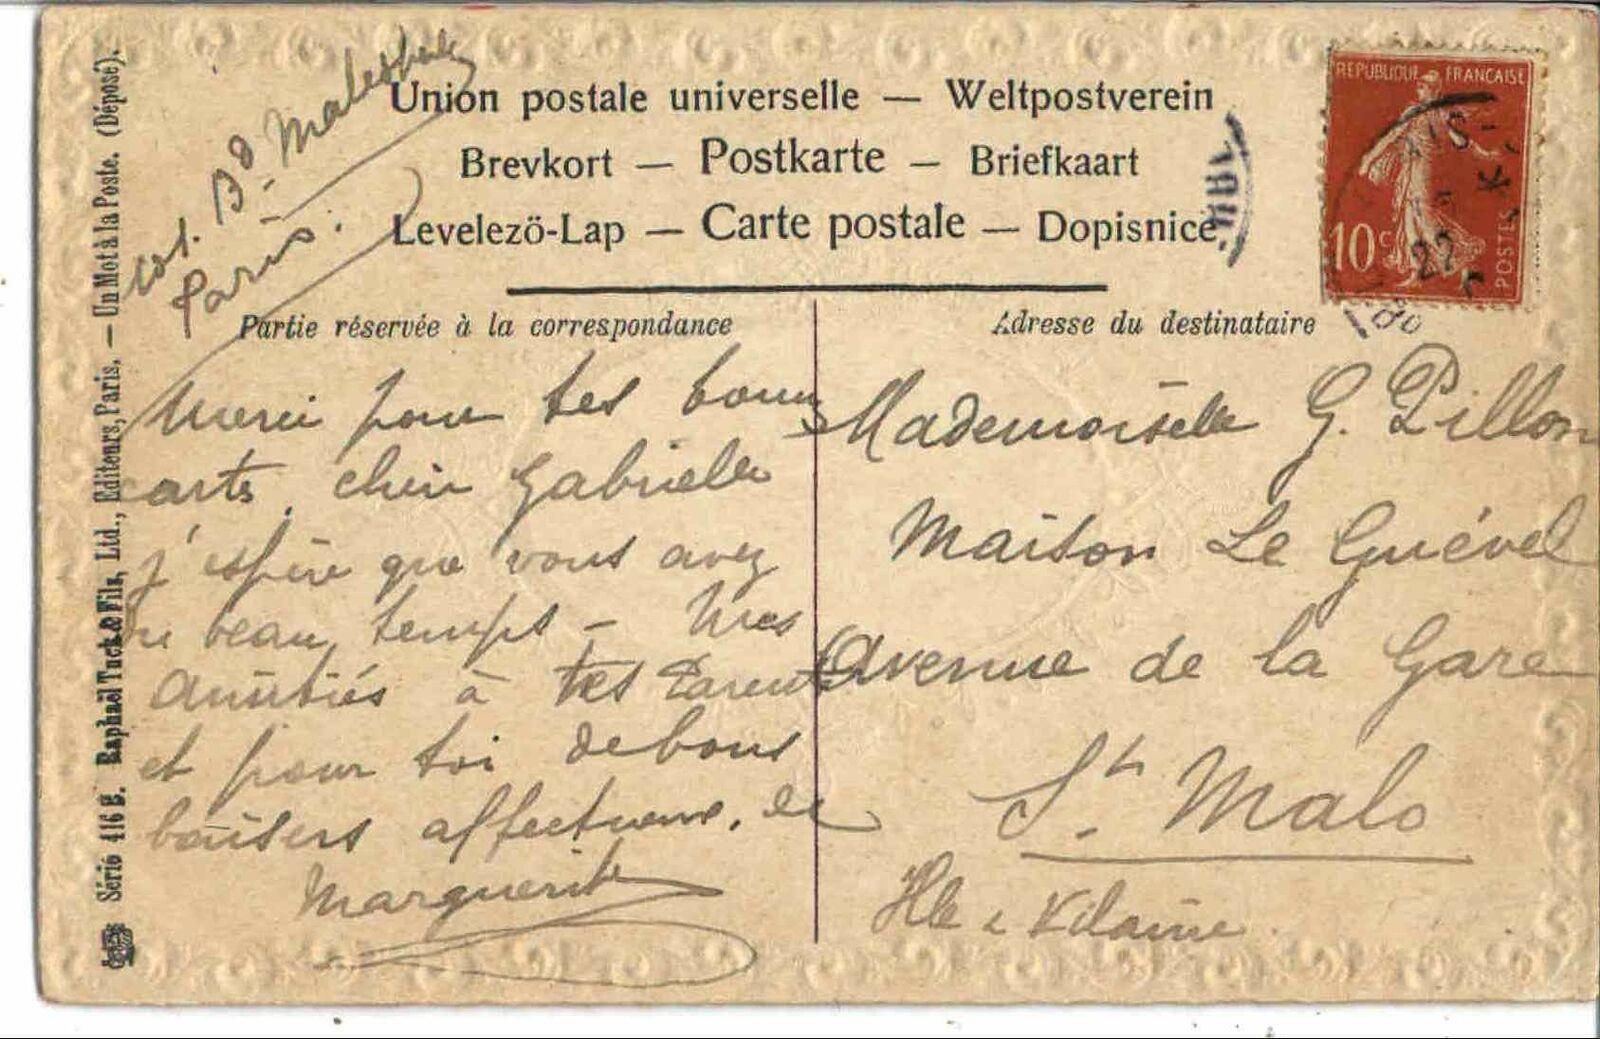 Bd. Malesherbes
Paris.
Union postale universelle — Weltpostverein
Brevkort — Postkarte — Briefkaart
Levelezö-Lap — Carte postale — Dopisnice
Partie réservée à la correspondance
Merci pour tes bonnes
cartes, chère Gabrielle
j'espère que vous avez
du beau temps — Mes
Amitiés à tes Parents
et pour toi de bons
baisers affectueux. de
Marguerite
Adresse du destinataire
Mademoiselle G. Pillon
Maison Le Guével
Avenue de la Gare
St. Malo
Ille & Vilaine
REPUBLIQUE FRANÇAISE
10c
POSTES
22
Série 416 B. Raphaël Tuck & Fils, Ltd., Editeurs, Paris. — Un Mot à la Poste. (Déposé).